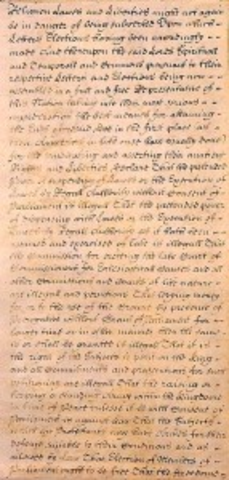 Religion Lawes and Liberties might not againe
be in danger of being subverted Upon which
Letters Elections having been accordingly
made And thereupon the said Lords Spirituall
and Temporall and Commons pursuant to their
respective Letters and Elections being now
assembled in a full and free Representative of
this Nation taking into their most serious
consideration the best meanes for attaining
the Ends aforesaid doe in the first place (as
their Auncestors in like case have usually done)
for the vindicating and asserting their auntient
Rights and Liberties Declare That the pretended
Power of suspending of Lawes or the Execution of
Lawes by Regall Authority without Consent of
Parliament is illegall That the pretended power
of dispensing with Lawes or the Execution of
Lawes by Regall Authority as it hath been
assumed and exercised of late is illegall That the
Commission for erecting the late Court of
Commissioners for Ecclesiasticall Causes and all
other Commissions and Courts of like nature
are illegall and pernicious That levying money
for or to the use of the Crowne by pretence of
Prerogative without Grant of Parliament for
longer time or in other manner then the same
is or shall be granted is illegall That it is
the right of the Subjects to petition the King
and all Commitments and prosecutions for such
petitioning are illegall That the raising or
keeping a standing Army within the Kingdome
in time of Peace unlesse it be with Consent of
Parliament is against Law That the Subjects
which are Protestants may have Armes for their
defence suitable to their Conditions and as
allowed by Law That Election of Members of
Parliament ought to be free That the freedome